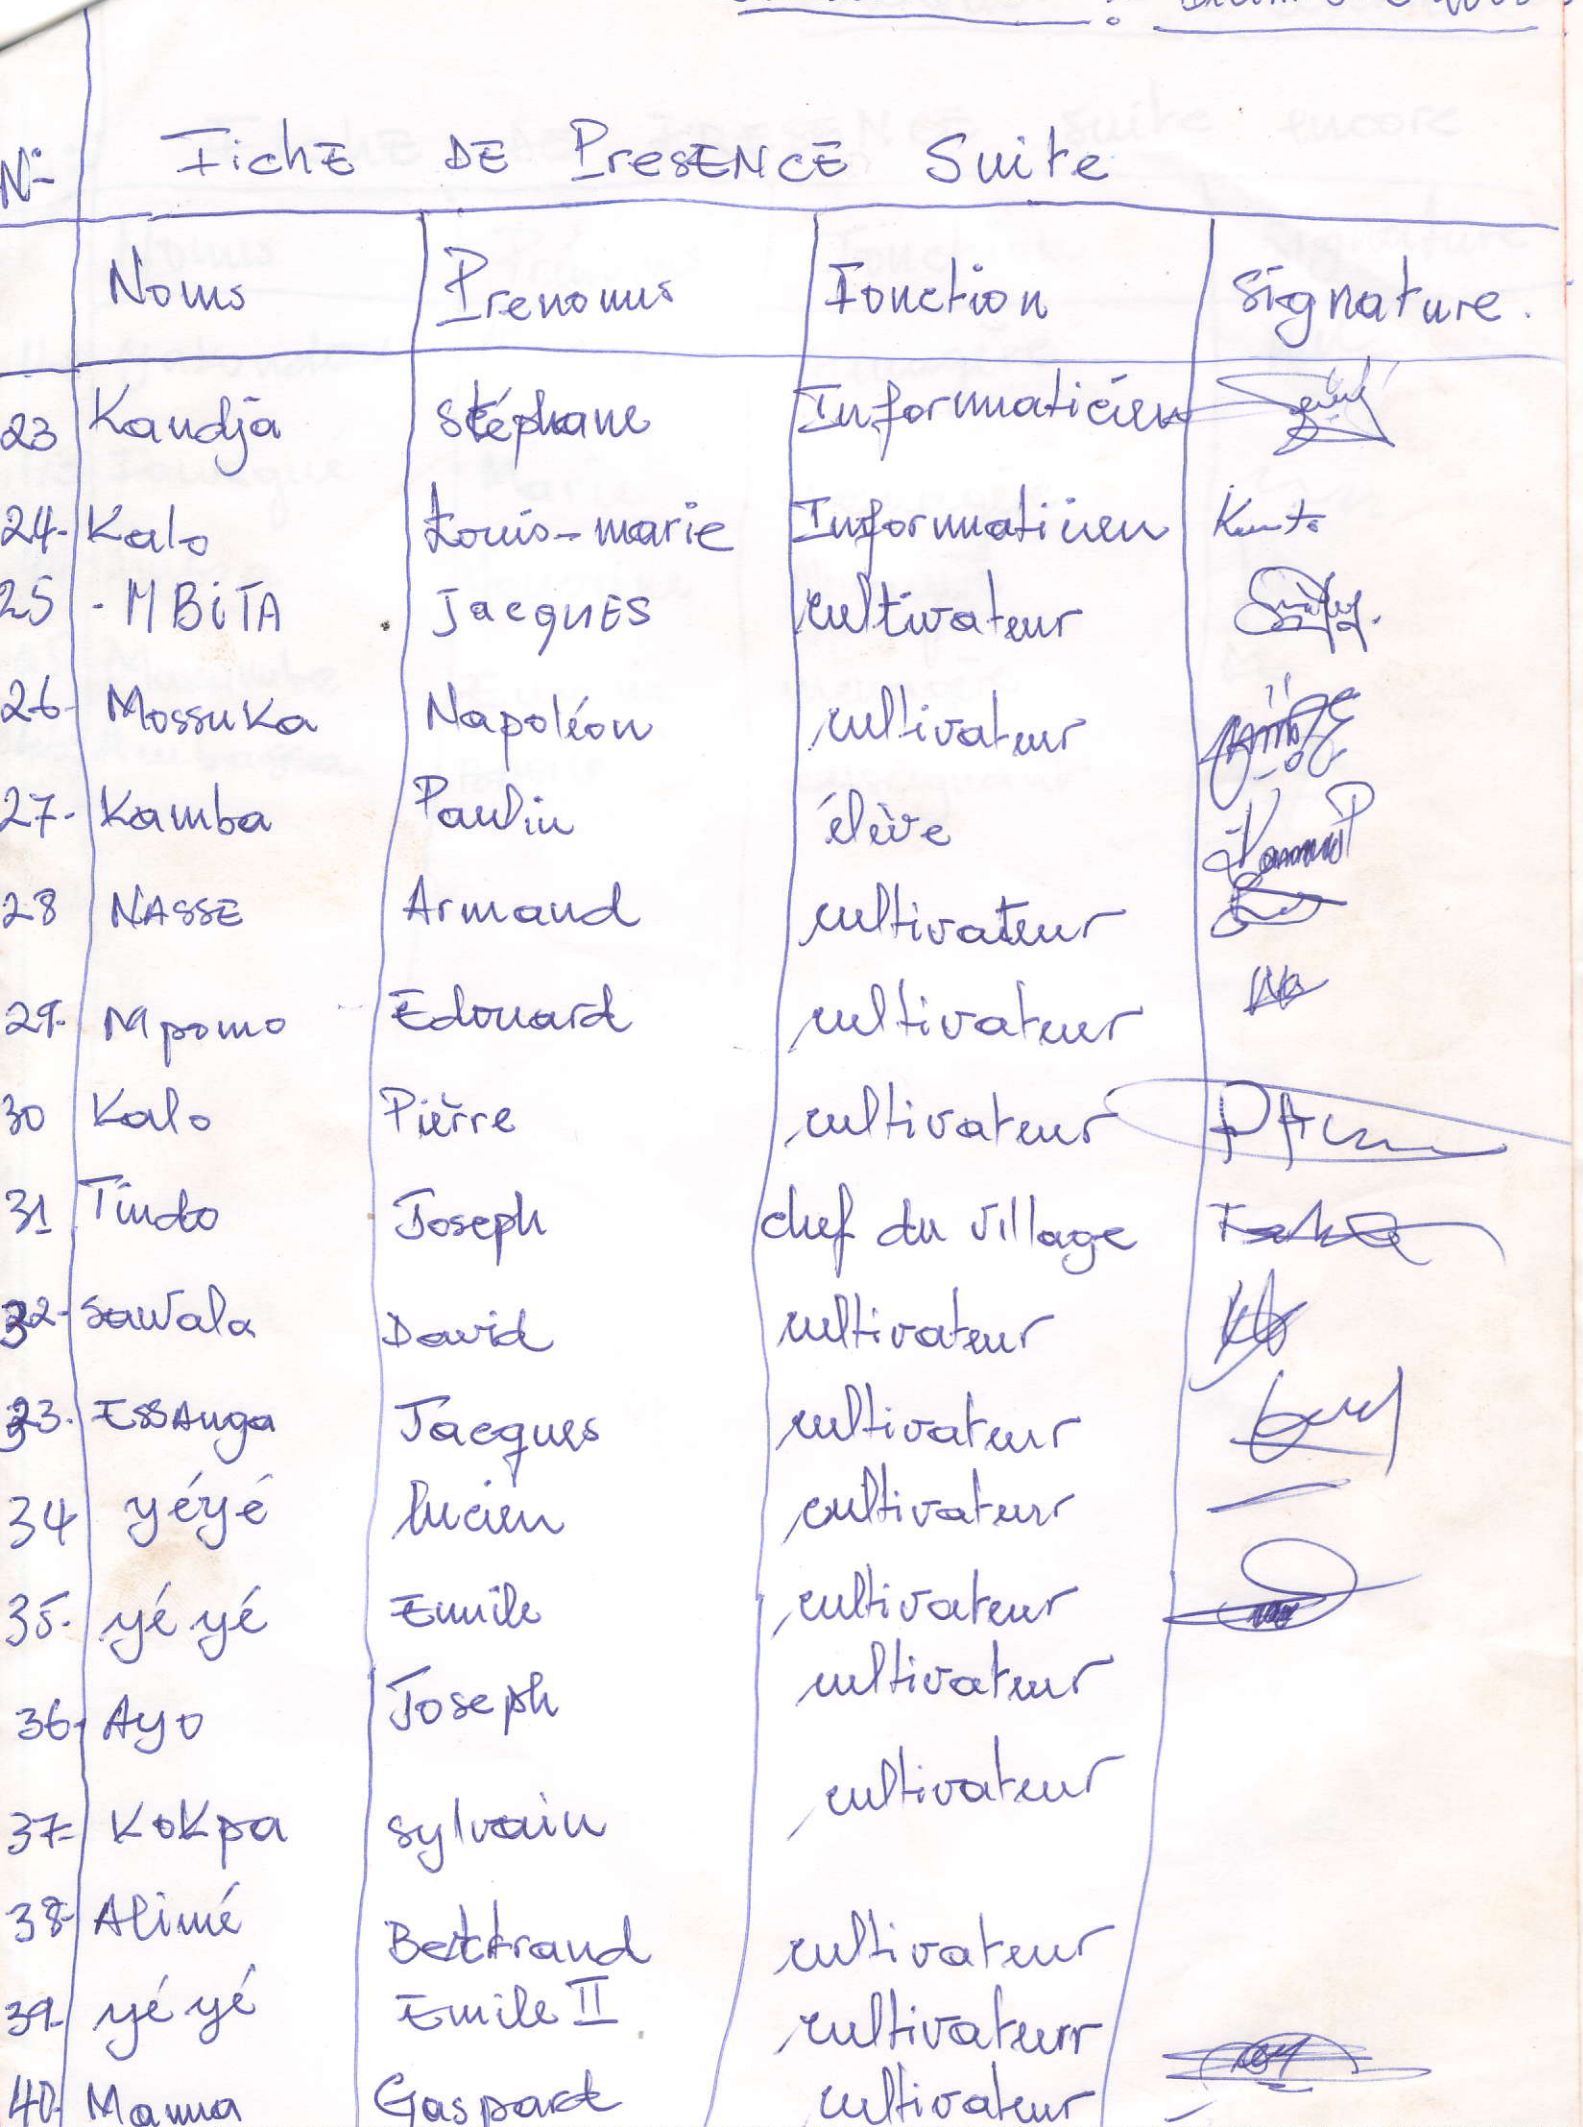 N° Fiche DE PresENCE Suite
Noms Prenoms Fonction Signature.
23 Kandja Stéphane Informaticien
24- Kalo Louis-marie Informaticien
25 - MBiTA Jacques cultivateur
26- Mossuka Napoléon cultivateur
27- Kamba Paulin élève
28 NASSE Armand cultivateur
29- Mpomo Edouard cultivateur
30 Kalo Pierre cultivateur
31 Tindo Joseph chef du village
32- Sawala David cultivateur
33- Essanga Jacques cultivateur
34 yéyé lucien cultivateur
35- yé yé Emile cultivateur
36- Ayo Joseph cultivateur
37- Kokpa sylvain cultivateur
38- Alimé Bertrand cultivateur
39- yé yé Emile II cultivateur
40- Mamia Gaspard cultivateur